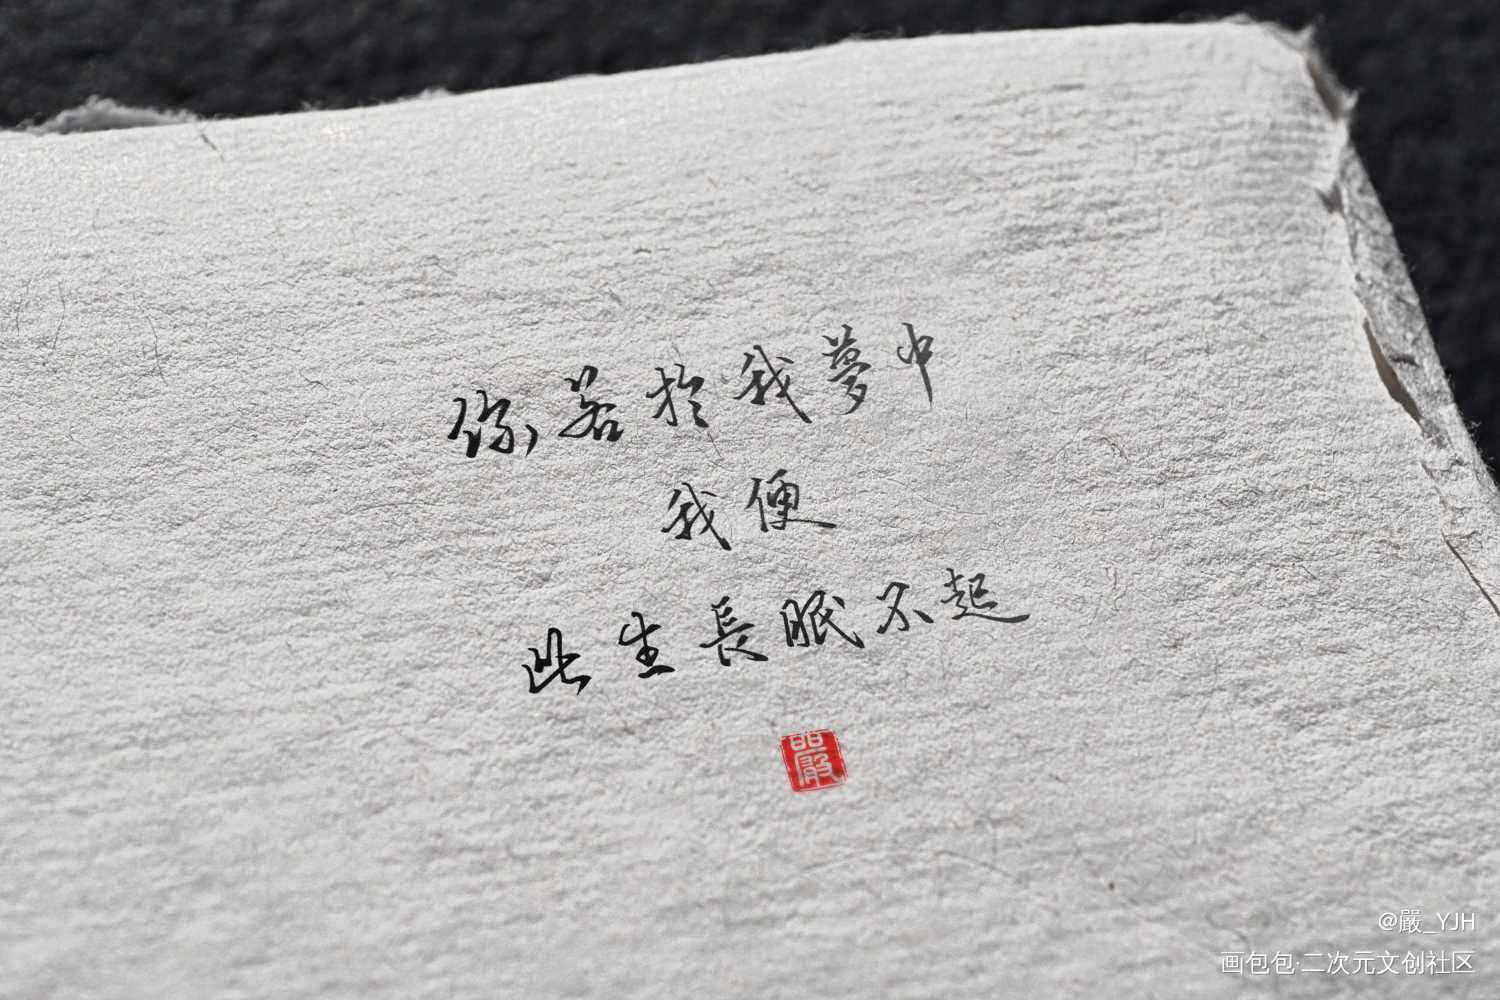 你若於我夢中
我便
此生長眠不起
嚴
@嚴_YJH
画包包·二次元文创社区